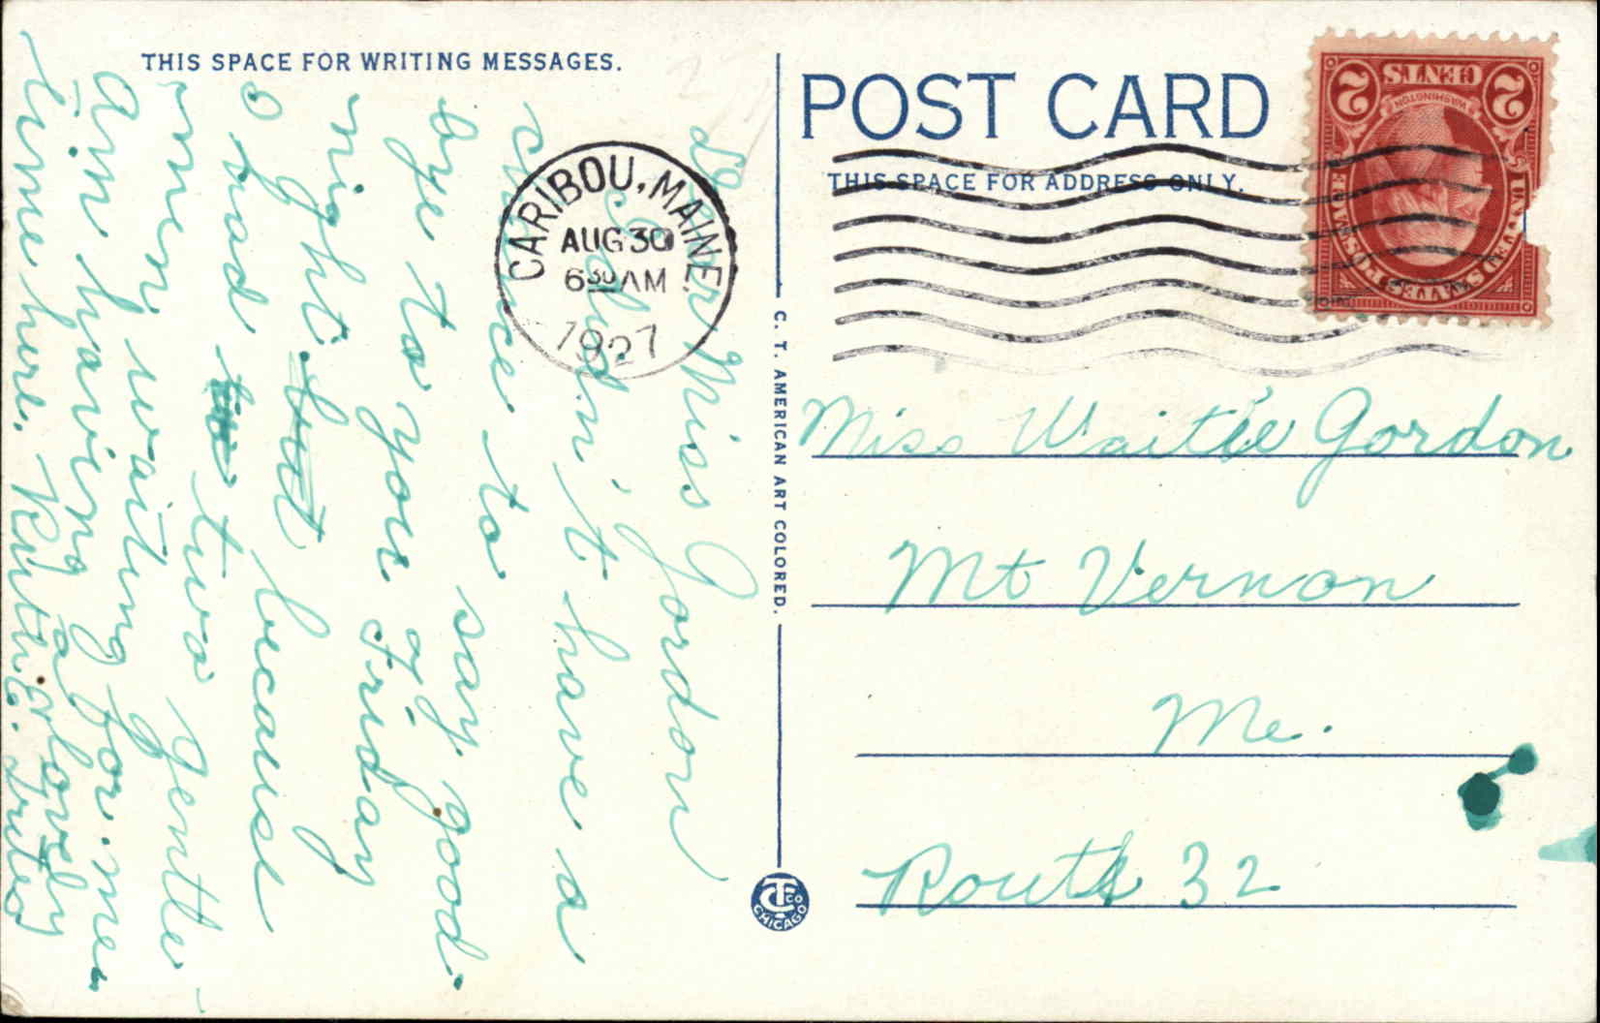 THIS SPACE FOR WRITING MESSAGES.
POST CARD
THIS SPACE FOR ADDRESS ONLY.
CARIBOU, MAINE.
AUG 30
6 30 AM
1927
CENTS
2 2
WASHINGTON
UNITED STATES POSTAGE
C. T. AMERICAN ART COLORED.
C.T. CO
CHICAGO
Miss Waitie Gordon
Mt Vernon
Me.
Route 32
Dear Miss Gordon
I didn't have a
chance to say good
bye to you Friday
night. because
I had two gentle-
men waiting for me.
Am having a lovely
time here. Ruth E.